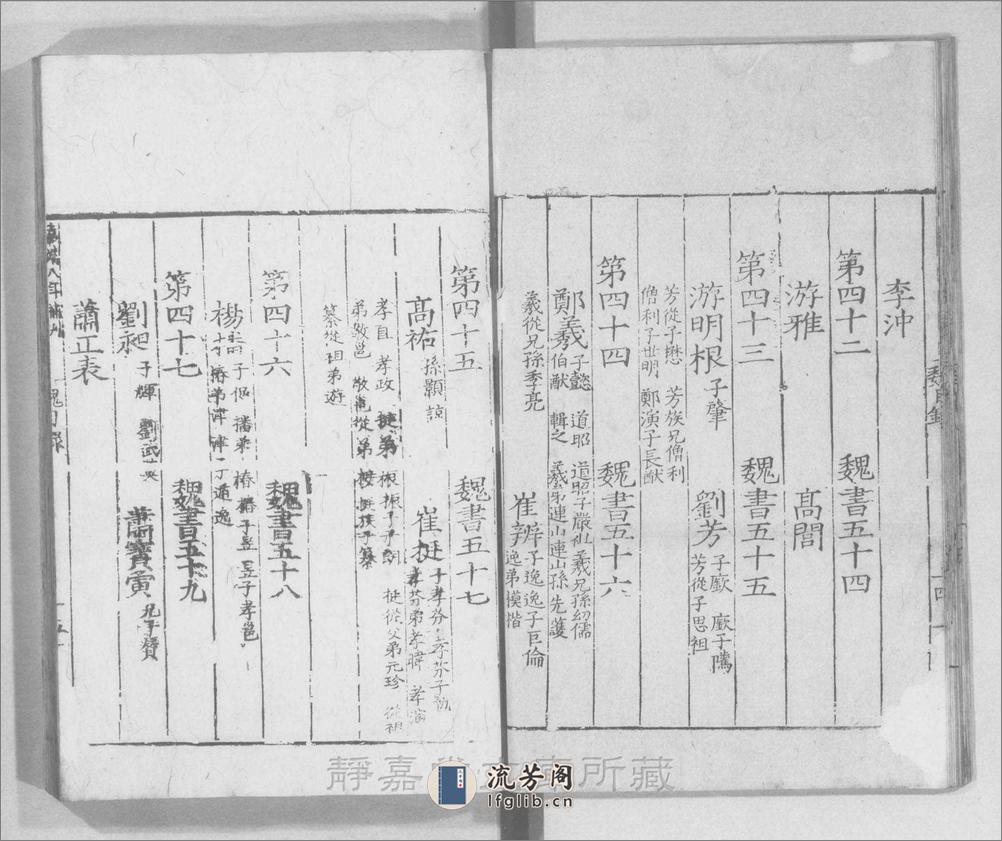 李沖
第四十二 魏書五十四
游雅 高閭
第四十三 魏書五十五
游明根 子肇 劉芳 子廞 廞子隲
芳從子思祖
芳從子懋 芳族兄僧利
僧利子世明 鄭演子長猷
第四十四 魏書五十六
鄭羲 子懿 道昭 道昭子嚴祖 羲兄孫幼儒
伯猷 輯之 羲弟連山 連山孫先護
羲從兄孫季亮 崔辨 子逸 逸子巨倫
逸弟模 楷
第四十五 魏書五十七
高祐 孫顥 諒 崔挺 子孝芬 孝芬子勔
孝芬弟孝暐 孝演
孝直 孝政 挺弟振 挺從父弟元珍 從祖
弟敬邕 敬邕從弟接 挺族子纂
纂從祖弟遊
第四十六 魏書五十八
楊播 子侃 播弟椿 椿子昱 昱子孝邕
椿弟津 津子遁 逸
第四十七 魏書五十九
劉昶 子輝 劉武英 蕭寶寅 兄子贊
蕭正表
靜嘉堂文庫所藏
流芳阁
lfglib.cn